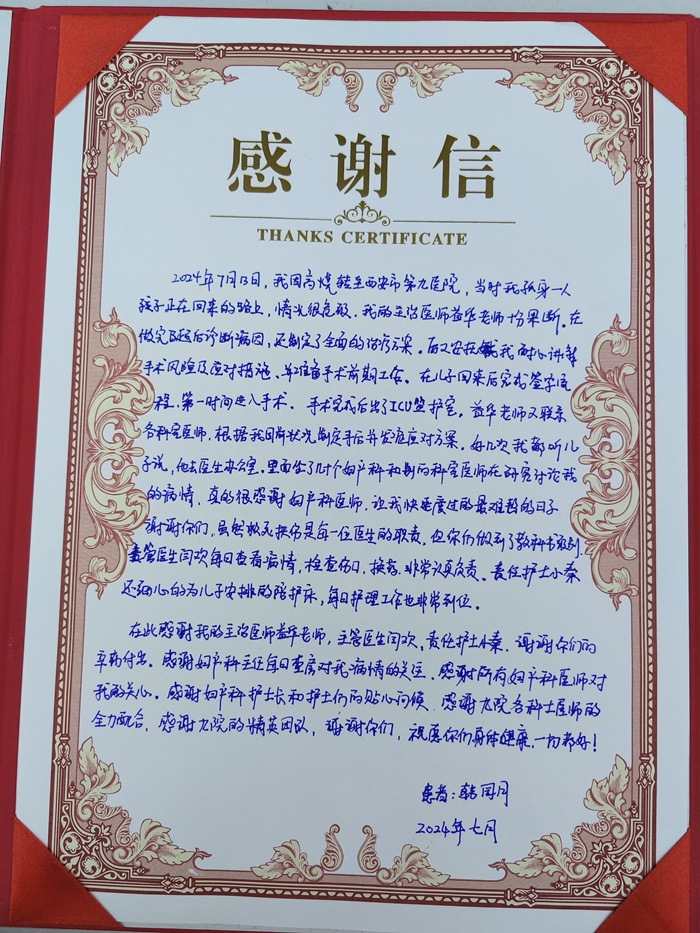 感谢信
THANKS CERTIFICATE
2024年7月13日，我因高烧转至西安市第九医院，当时我孤身一人
孩子正在回来的路上，情况很危险。我的主治医师益华老师十分果断。在
做完B超后诊断病因，还制定了全面的治疗方案。而又安抚我耐心讲解
手术风险及应对措施、并准备手术前期工作。在儿子回来后完成签字流
程，第一时间进入手术。手术完成后出了ICU监护室。益华老师又联系
各科室医师，根据我目前状况制定手后并发症应对方案。好几次我都听儿
子说，他去医生办公室，里面坐了几个妇产科和别的科室医师在研究讨论我
的病情，真的很感谢妇产科医师，让我快速度过的最难熬的日子
谢谢你们，虽然救死扶伤是每一位医生的职责，但你们做到了教科书级别
主管医生闫欢每日查看病情，检查伤口，换药、非常认真负责。责任护士小秦
还细心的为儿子安排的陪护床，每日护理工作也非常到位。
在此感谢我的主治医师益华老师，主管医生闫欢，责任护士小秦、谢谢你们的
辛苦付出。感谢妇产科主任每日查房对我病情的关注、感谢所有妇产科医师对
我的关心。感谢妇产科护士长和护士们的贴心问候、感谢九院各科士医师的
全力配合，感谢九院的精英团队，谢谢你们，祝愿你们身体健康，一切都好！
患者：韩闰月
2024年七月